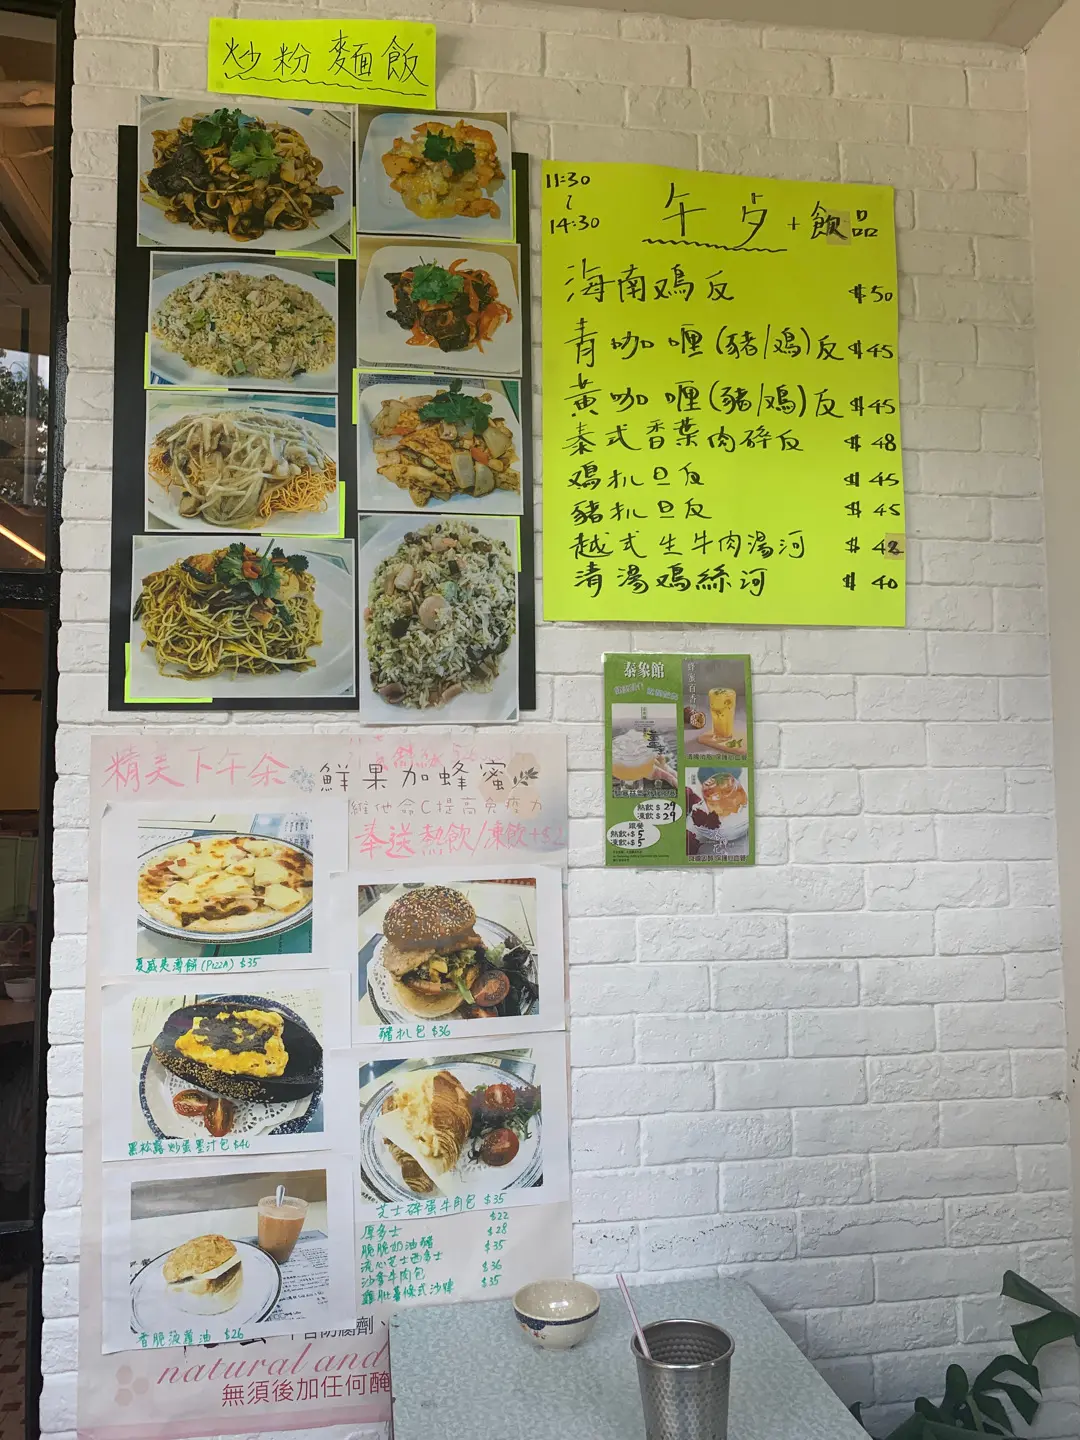 炒粉麵飯
11:30
~
14:30
午歺+飲品
海南鸡反 $50
青咖喱(豬/鸡)反 $45
黃咖喱(豬/鸡)反 $45
泰式香葉肉碎反 $48
鸡扒旦反 $45
豬扒旦反 $45
越式生牛肉湯河 $42
清湯鸡絲河 $40
泰象館
熱飲 $29
凍飲 $29
跟餐
熱飲+$5
凍飲+$5
精美下午余
鮮果加蜂蜜
維他命C提高免疫力
奉送熱飲/凍飲+$2
夏威夷薄餅(PIZZA) $35
豬扒包 $36
黑松露炒蛋墨汁包 $40
芝士碎蛋牛角包 $35
厚多士 $22
脆脆奶油豬 $28
流心芝士西多士 $35
沙爹牛肉包 $36
$35
香脆菠蘿油 $26
natural and
無須後加任何醃